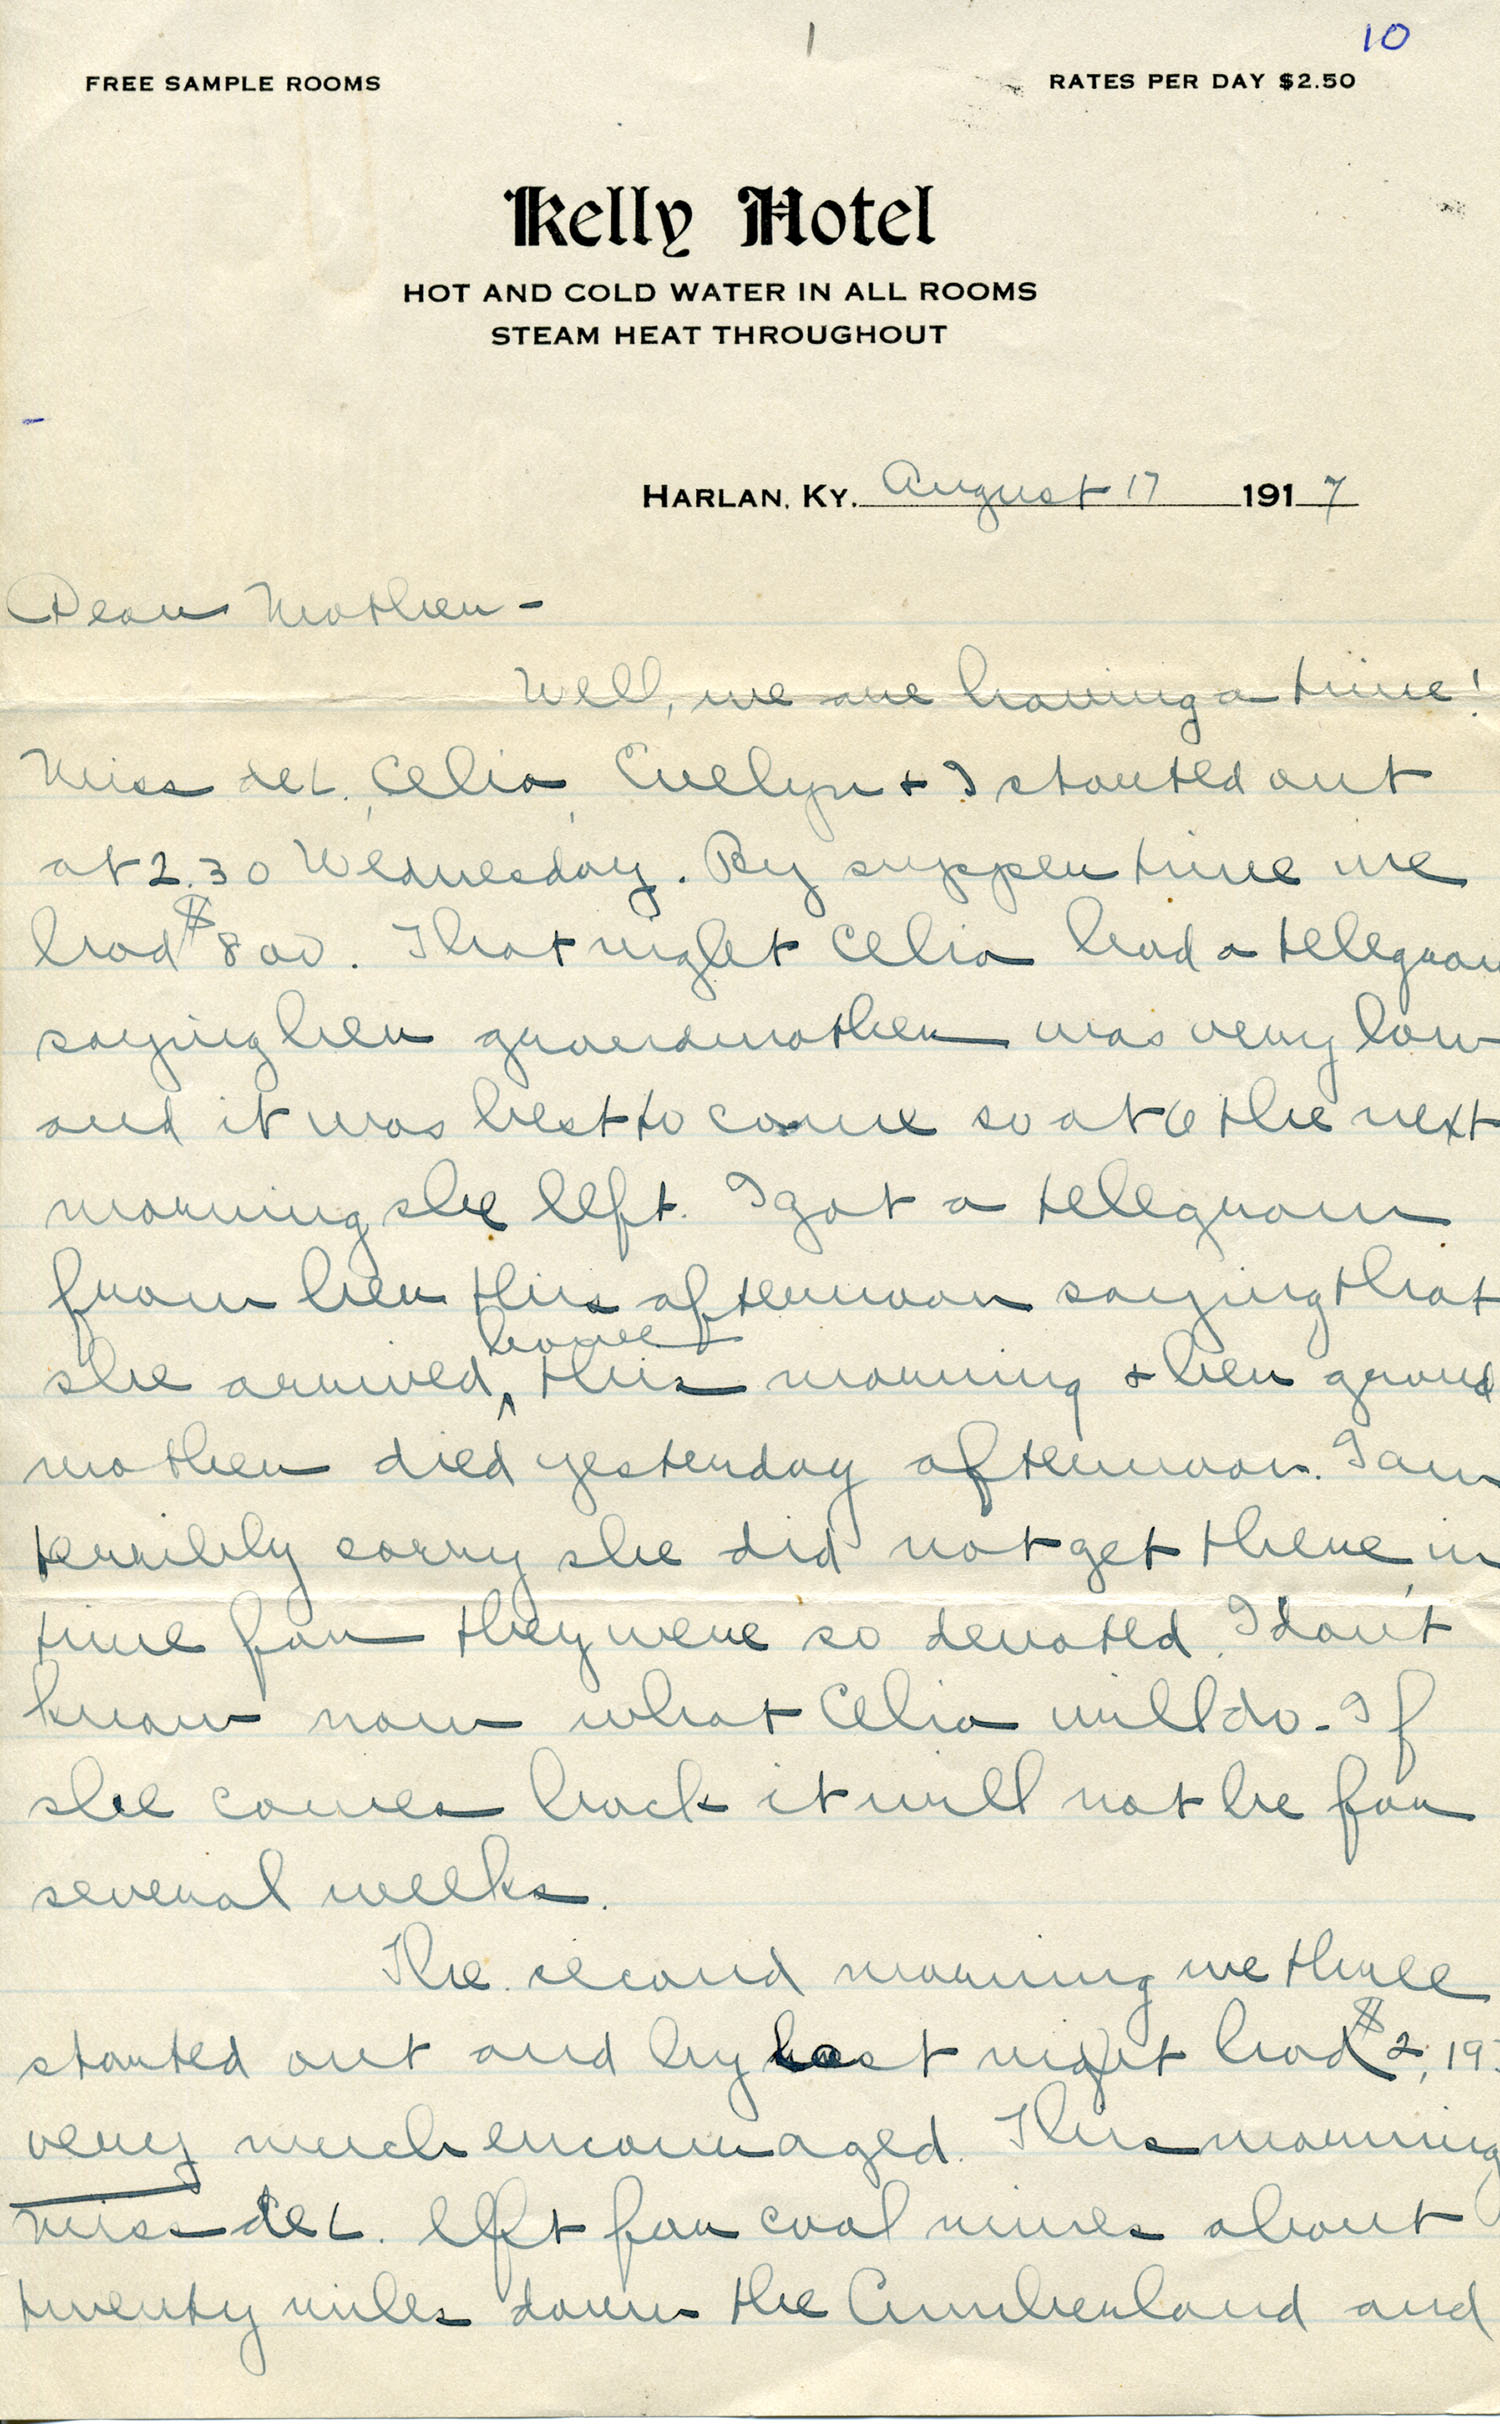 1
10
FREE SAMPLE ROOMS
RATES PER DAY $2.50
Kelly Hotel
HOT AND COLD WATER IN ALL ROOMS
STEAM HEAT THROUGHOUT
HARLAN, KY. August 17 1917
Dear Mother -
Well, we are having a time!
Miss de L., Celia, Evelyn + I started out
at 2.30 Wednesday. By supper time we
had $800. That night Celia had a telegram
saying her grandmother was very low
and it was best to come so at 6 the next
morning she left. I got a telegram
from her this afternoon saying that
she arrived ^home this morning + her grand
mother died yesterday afternoon. I am
terribly sorry she did not get there in
time for they were so devoted. I don't
know now what Celia will do - If
she comes back it will not be for
several weeks.
The second morning we three
started out and by last night had $2,19
very much encouraged. This morning
Miss de L. left for coal mines about
twenty miles down the Cumberland and